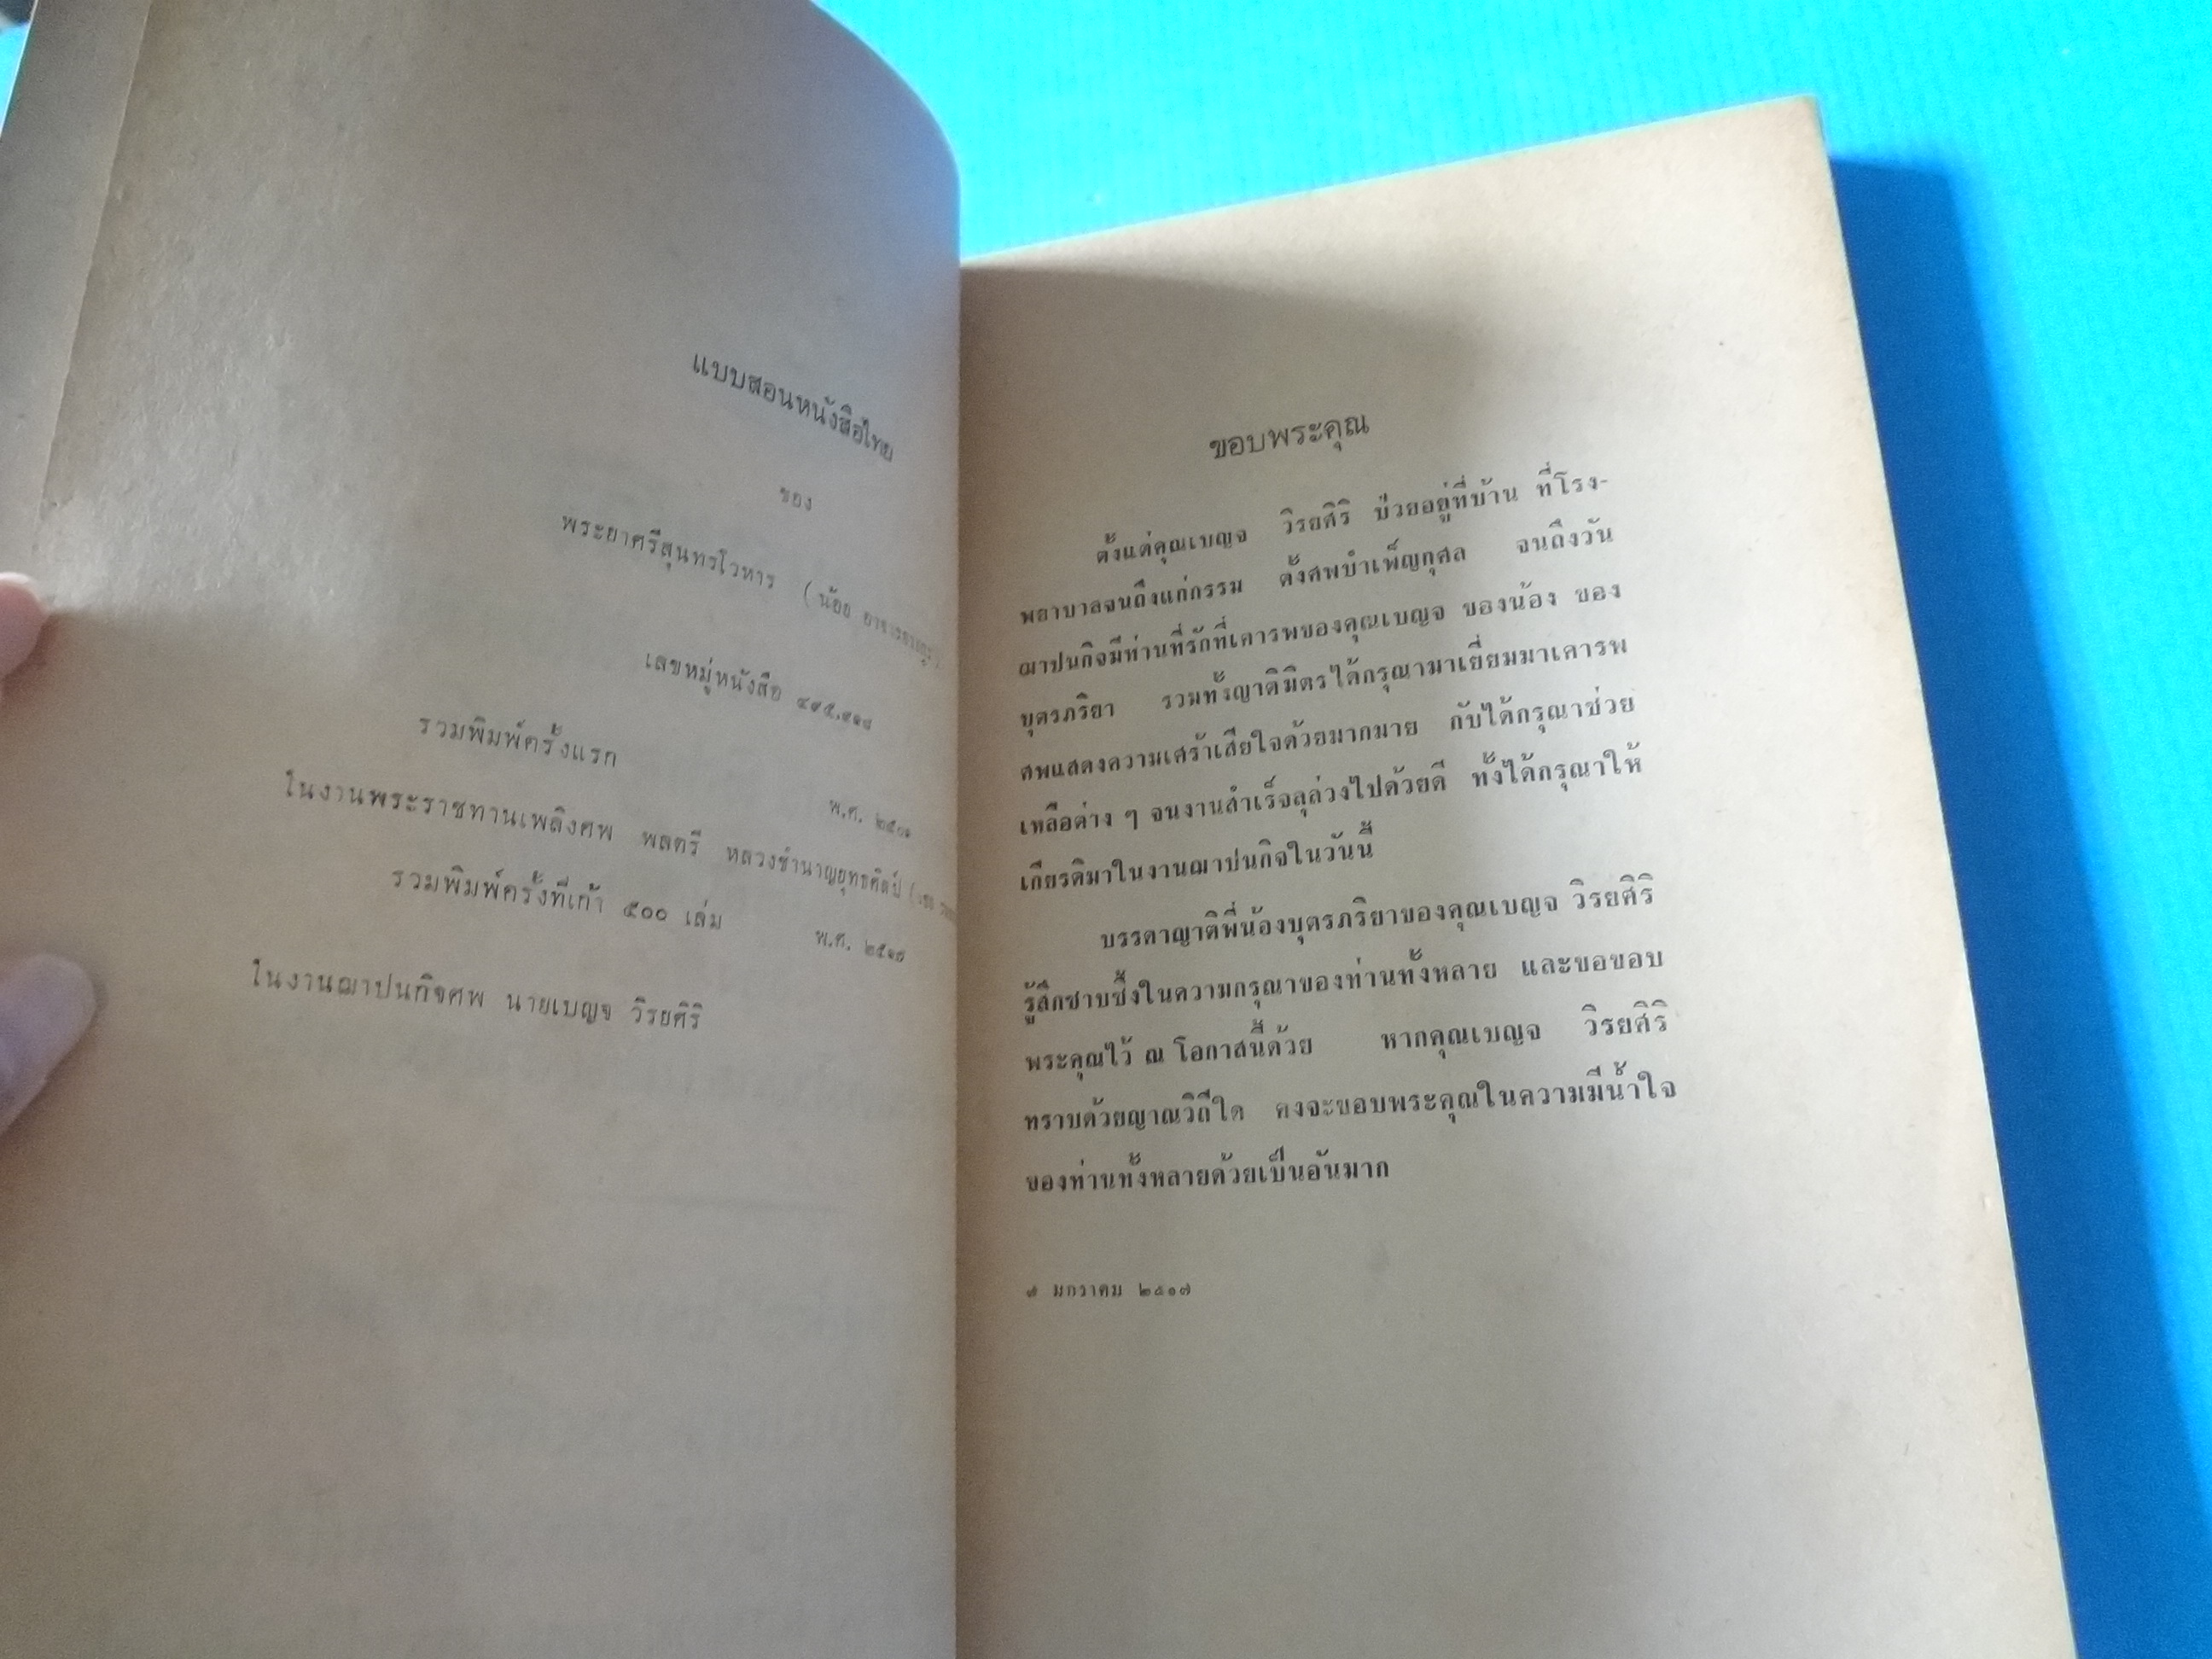 แบบสอนหนังสือไทย
ของ
พระยาศรีสุนทรโวหาร (น้อย อาจารยางกูร)
เลขหมู่หนังสือ ๔๙๕.๙๑๘
รวมพิมพ์ครั้งแรก พ.ศ.
ในงานพระราชทานเพลิงศพ พลตรี หลวงชำนาญยุทธศิลป์
รวมพิมพ์ครั้งที่เก้า ๕๐๐ เล่ม พ.ศ.
ในงานฌาปนกิจศพ นายเบญจ วิรยศิริ
ขอบพระคุณ
ตั้งแต่คุณเบญจ วิรยศิริ ป่วยอยู่ที่บ้าน ที่โรง-
พยาบาลจนถึงแก่กรรม ตั้งศพบำเพ็ญกุศล จนถึงวัน
ฌาปนกิจมีท่านที่รักที่เคารพของคุณเบญจ ของน้อง ของ
บุตรภริยา รวมทั้งญาติมิตรได้กรุณามาเยี่ยมมาเคารพ
ศพแสดงความเศร้าเสียใจด้วยมากมาย กับได้กรุณาช่วย
เหลือต่าง ๆ จนงานสำเร็จลุล่วงไปด้วยดี ทั้งได้กรุณาให้
เกียรติมาในงานฌาปนกิจในวันนี้
บรรดาญาติพี่น้องบุตรภริยาของคุณเบญจ วิรยศิริ
รู้สึกซาบซึ้งในความกรุณาของท่านทั้งหลาย และขอขอบ
พระคุณไว้ ณ โอกาสนี้ด้วย หากคุณเบญจ วิรยศิริ
ทราบด้วยญาณวิถีใด คงจะขอบพระคุณในความมีน้ำใจ
ของท่านทั้งหลายด้วยเป็นอันมาก
มกราคม ๒๕๑๗